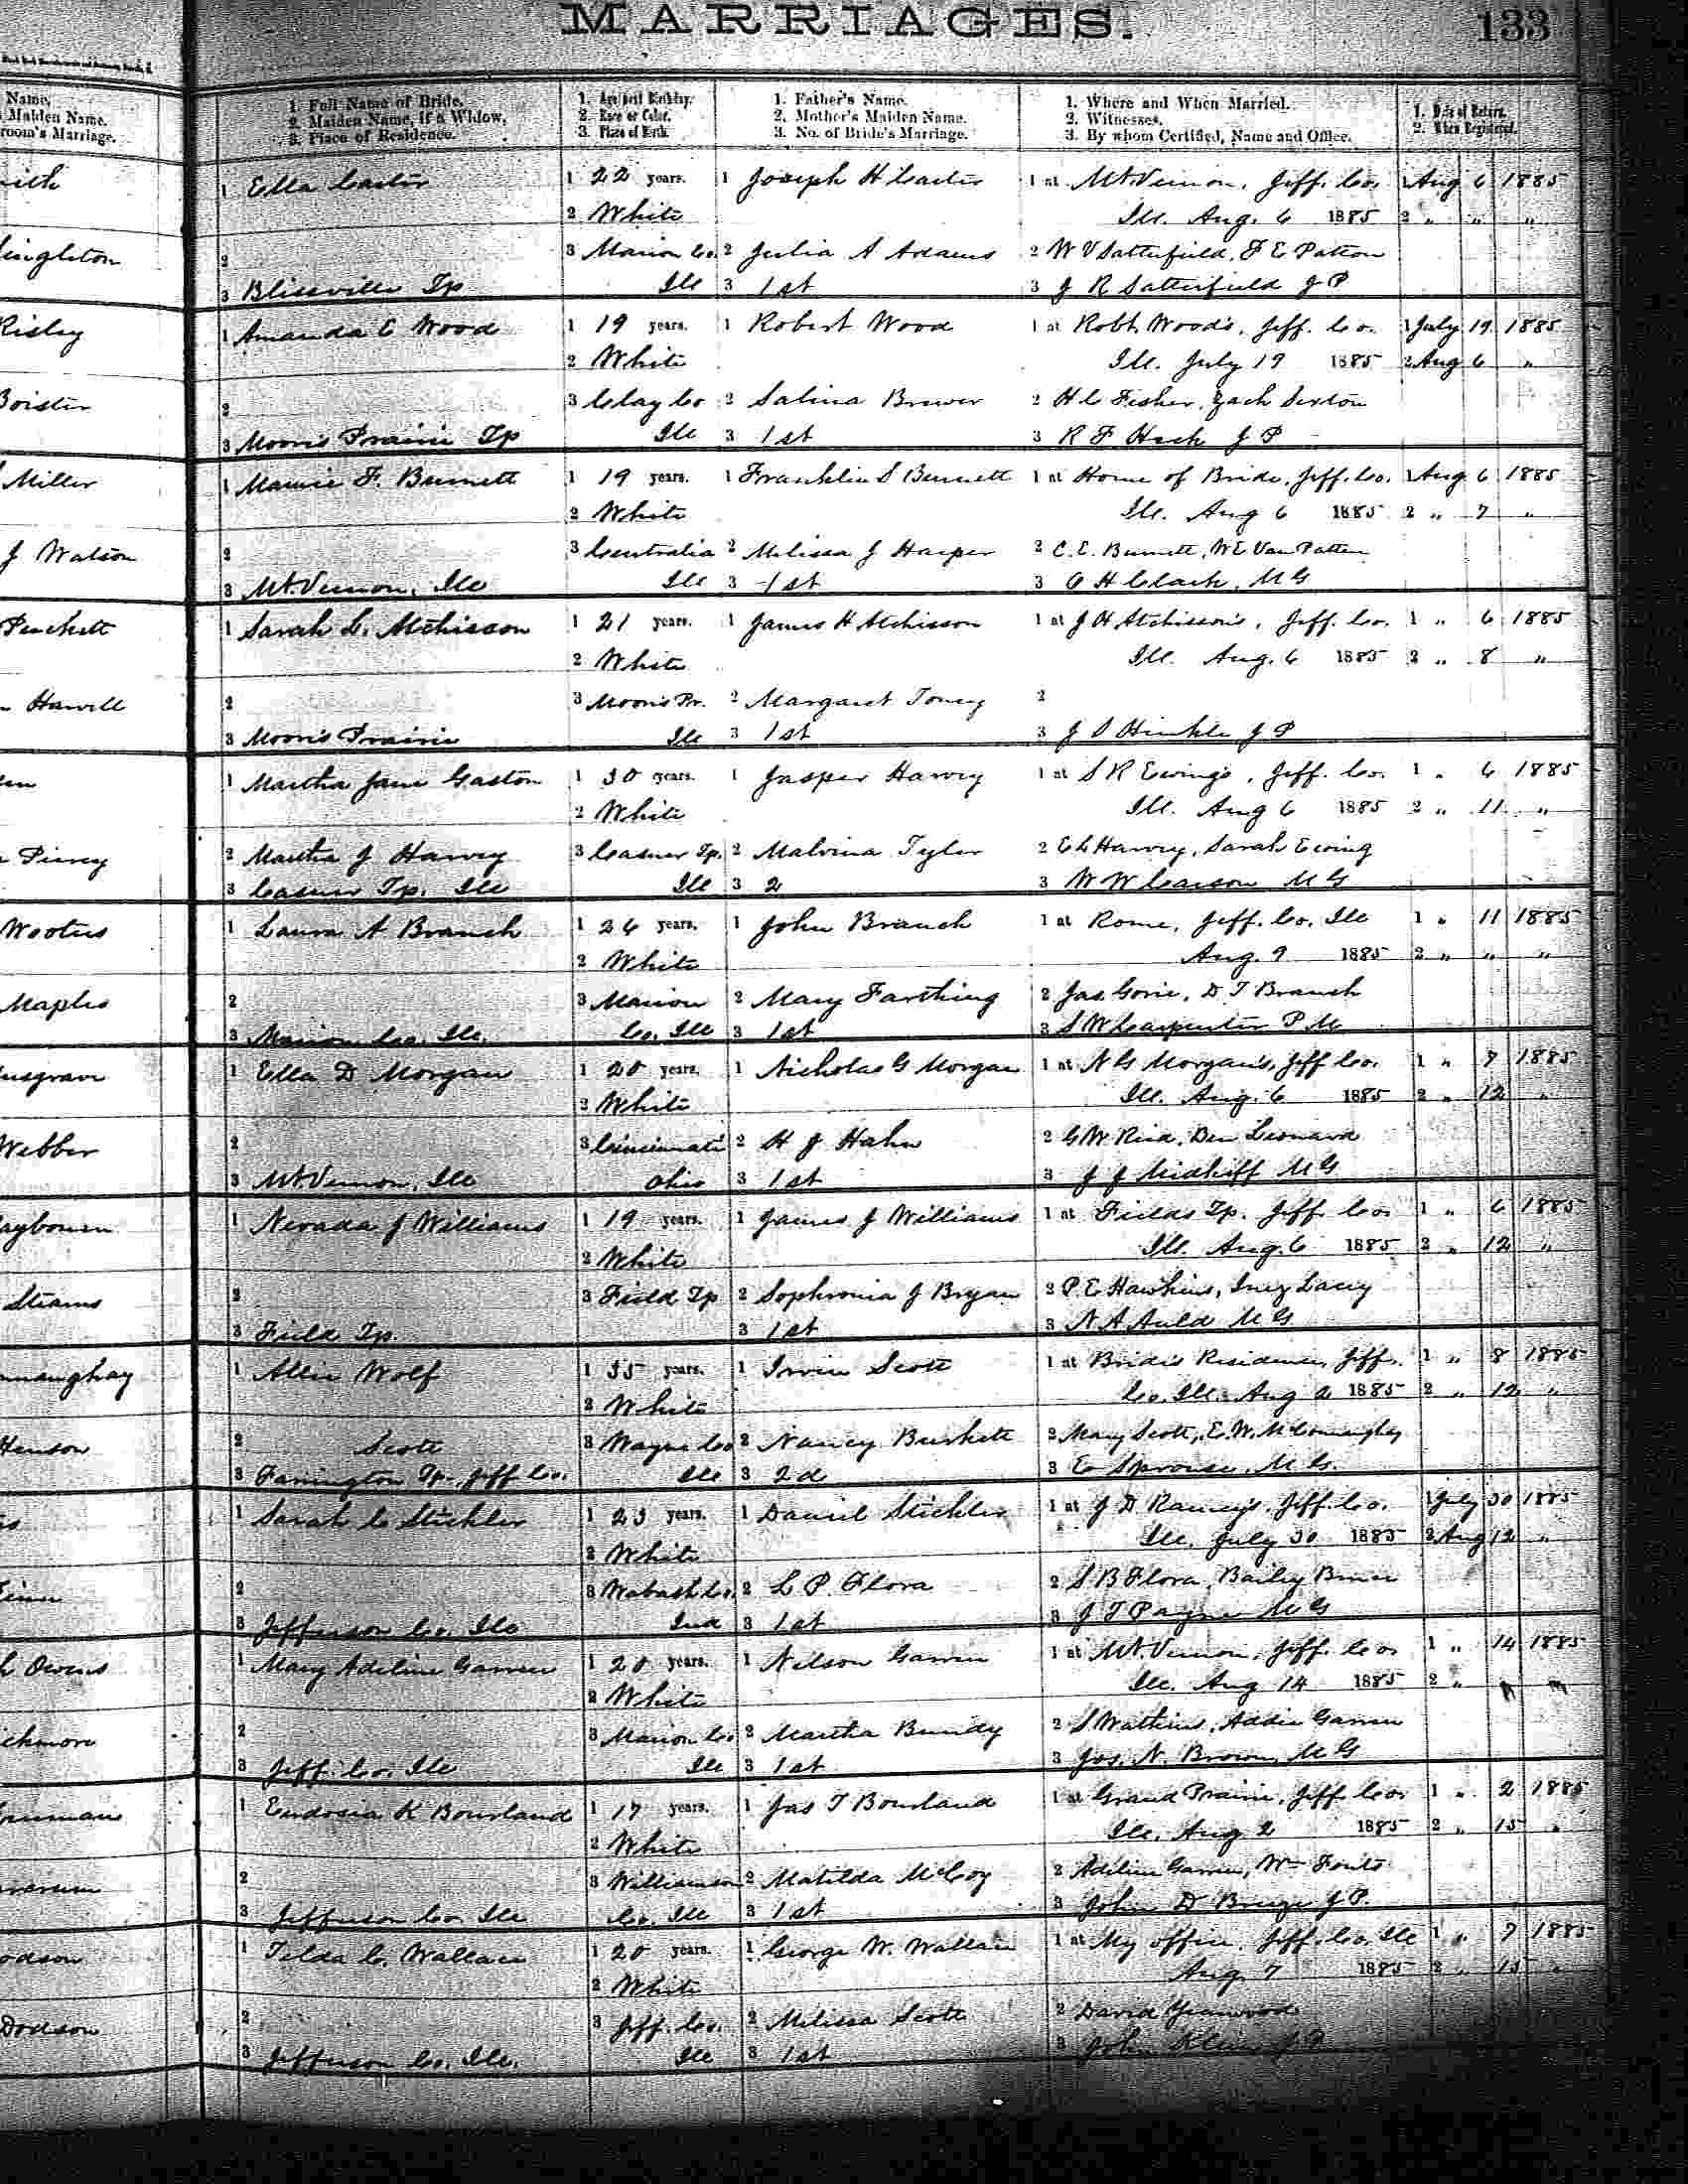 MARRIAGES.
133
Name,
Maiden Name.
room's Marriage.
1. Full Name of Bride.
2. Maiden Name, If a Widow.
3. Place of Residence.
1. Age next Birthday.
2. Race or Color.
3. Place of Birth.
1. Father's Name.
2. Mother's Maiden Name.
3. No. of Bride's Marriage.
1. Where and When Married.
2. Witnesses.
3. By whom Certified, Name and Office.
1. Date of Return.
2. When Registered.
1 Ella Carter 1 22 years. 1 Joseph H Carter 1 at Mt. Vernon, Jeff. Co. 1 Aug 6 1885
2 White Ill. Aug. 6 1885 2 " " "
ington 2 3 Marion Co. 2 Julia A Adams 2 W V Satterfield, F E Patton
3 Blissville Tp Ill 3 1st 3 J R Satterfield J P
Risley 1 Amanda E Wood 1 19 years. 1 Robert Wood 1 at Robt. Wood's, Jeff. Co. 1 July 19 1885
2 White Ill. July 19 1885 2 Aug 6 "
Boister 2 3 Clay Co 2 Salina Brewer 2 H C Fisher, Zach Sexton
3 Moores Prairie Tp Ill 3 1st 3 R F Heck J P
Miller 1 Mamie F. Burnett 1 19 years. 1 Franklin S Burnett 1 at Home of Bride, Jeff. Co. 1 Aug 6 1885
2 White Ill. Aug 6 1885 2 " 7 "
J Watson 2 3 Centralia 2 Melissa J Harper 2 C. E. Burnett, W E Van Patten
3 Mt. Vernon, Ill Ill 3 1st 3 C H Clark, M G
1 Sarah L. Atchisson 1 21 years. 1 James H Atchisson 1 at J H Atchisson's, Jeff. Co. 1 " 6 1885
2 White Ill. Aug. 6 1885 2 " 8 "
Harvill 2 3 Moore's Pr. 2 Margaret Toney 2
3 Moore's Prairie Ill 3 1st 3 J S Hinkle J P
1 Martha Jane Gaston 1 30 years. 1 Jasper Harvey 1 at S R Ewing's, Jeff. Co. 1 " 6 1885
2 White Ill. Aug 6 1885 2 " 11 "
Piercy 2 Martha J Harvey 3 Casner Tp. 2 Malvina Tyler 2 E L Harvey, Sarah Ewing
3 Casner Tp. Ill Ill 3 2 3 W W Carson M G
1 Laura A Branch 1 26 years. 1 John Branch 1 at Rome, Jeff. Co. Ill 1 " 11 1885
2 White Aug. 9 1885 2 " " "
Maples 2 3 Marion 2 Mary Farthing 2 Jas Gorie, D T Branch
3 Marion Co. Ill. Co. Ill 3 1st 3 S W Carpenter P M
usgrave 1 Ella D Morgan 1 20 years. 1 Nicholas G Morgan 1 at N G Morgan's, Jeff Co. 1 " 7 1885
2 White Ill. Aug. 6 1885 2 " 12 "
Webber 2 3 Cincinnati 2 H J Hahn 2 G W Reid, Ben Leonard
3 Mt. Vernon, Ill Ohio 3 1st 3 J J Midkiff M G
1 Nevada J Williams 1 19 years. 1 James J Williams 1 at Fields Tp. Jeff. Co. 1 " 6 1885
2 White Ill. Aug. 6 1885 2 " 12 "
Stearns 2 3 Field Tp 2 Sophronia J Bryan 2 P. E Hawkins, Inez Lacey
3 Field Tp. 3 1st 3 N A Auld M G
1 Allie Wolf 1 35 years. 1 Irvin Scott 1 at Bride's Residence, Jeff. 1 " 8 1885
2 White Co. Ill. Aug 2 1885 2 " 12 "
Henson 2 Scott 3 Wayne Co 2 Nancy Burkett 2 Mary Scott, E. W. McConnaughay
3 Farrington Tp. Jeff Co. Ill 3 2d 3 E Sprouse, M. G.
1 Sarah C Stichler 1 23 years. 1 Daniel Stichler 1 at J D Raney's, Jeff. Co. 1 July 30 1885
2 White Ill. July 30 1885 2 Aug 12 "
2 3 Wabash Co. 2 L P. Flora 2 S B Flora, Bailey
3 Jefferson Co. Ill Ind 3 1st 3 J T Payne M G
Owens 1 Mary Adeline Garren 1 20 years. 1 Nelson Garren 1 at Mt. Vernon, Jeff. Co. 1 " 14 1885
2 White Ill. Aug 14 1885 2 " " "
ickmore 2 3 Marion Co. 2 Martha Bundy 2 S Watkins, Addie Garren
3 Jeff. Co. Ill Ill 3 1st 3 Jos. N. Brown, M G
1 Eudosia K Bourland 1 17 years. 1 Jas T Bourland 1 at Grand Prairie, Jeff. Co. 1 " 2 1885
2 White Ill. Aug 2 1885 2 " 15 "
2 3 Williamson 2 Matilda McCoy 2 Adeline Garren, Wm Fouts
3 Jefferson Co. Ill Co. Ill 3 1st 3 John D Breeze J P.
odson 1 Tilda C. Wallace 1 20 years. 1 George W. Wallace 1 at My office, Jeff. Co. Ill 1 " 7 1885
2 White Aug. 7 1885 2 " 15 "
Dodson 2 3 Jeff. Co. 2 Melissa Scott 2 David Yearwood
3 Jefferson Co. Ill. Ill 3 1st 3 John Klein J P